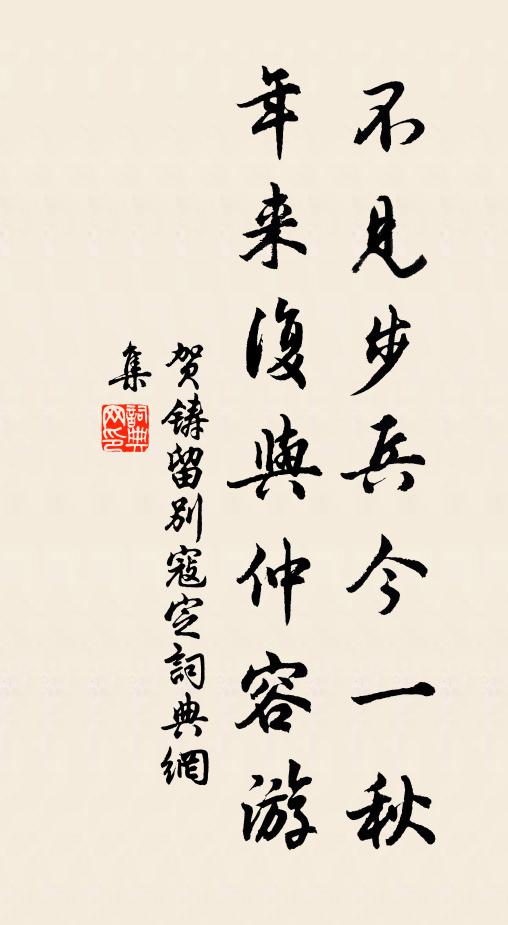 不見步兵今一秋
年来復與仲容游
贺鑄留別寇定詞典網
集
詞典网印